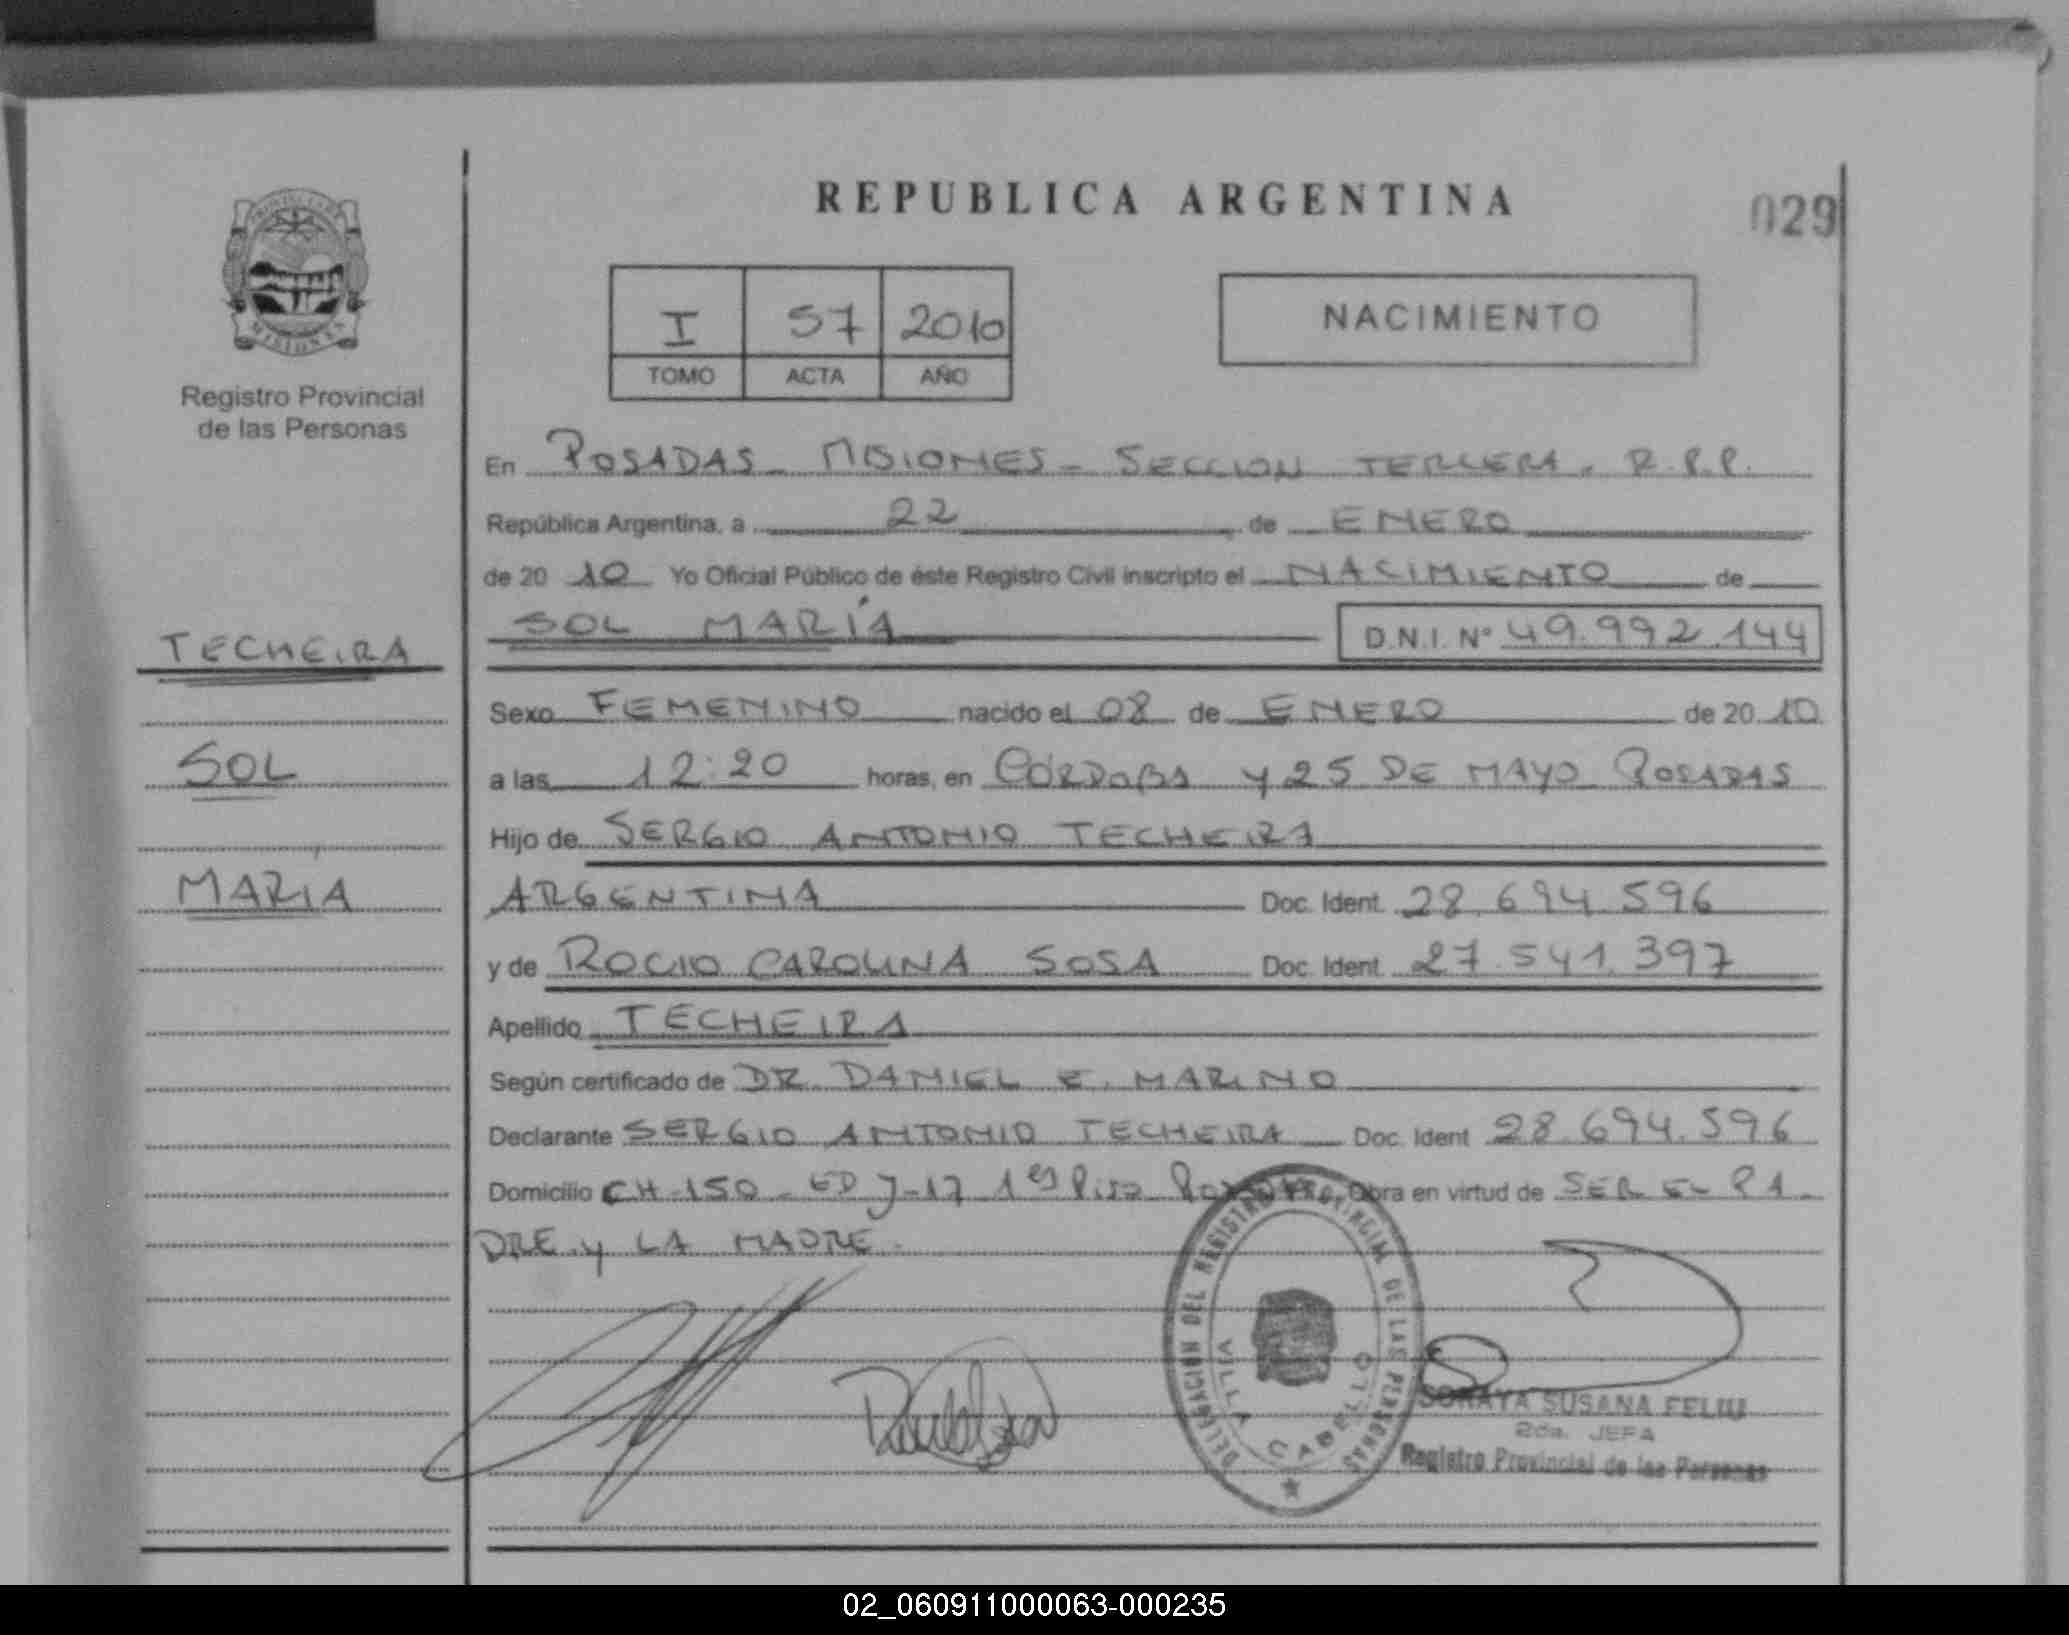 REPUBLICA ARGENTINA
029
PROVINCIA DE
MISIONES
Registro Provincial
de las Personas
I 57 2010
TOMO ACTA AÑO
NACIMIENTO
En POSADAS - MISIONES - SECCION TERCERA. R.P.P.
República Argentina, a 22 de ENERO
de 20 10 Yo Oficial Público de éste Registro Civil inscripto el NACIMIENTO de
SOL MARÍA D.N.I. Nº 49.992.144
TECHEIRA
SOL
MARÍA
Sexo FEMENINO nacido el 08 de ENERO de 20 10
a las 12:20 horas, en CÓRDOBA y 25 DE MAYO POSADAS
Hijo de SERGIO ANTONIO TECHEIRA
ARGENTINA Doc. Ident. 28.694.596
y de ROCIO CAROLINA SOSA Doc. Ident. 27.541.397
Apellido TECHEIRA
Según certificado de DR. DANIEL E. MARINO
Declarante SERGIO ANTONIO TECHEIRA Doc. Ident 28.694.596
Domicilio CH-150 - ED J-17 1er Piso Obra en virtud de SER EL PA-
DRE y LA MADRE.
DELEGACION DEL REGISTRO PROVINCIAL DE LAS PERSONAS
VILLA CABELLO
SORAYA SUSANA FELIU
2da. JEFA
Registro Provincial de las Personas
02_060911000063-000235